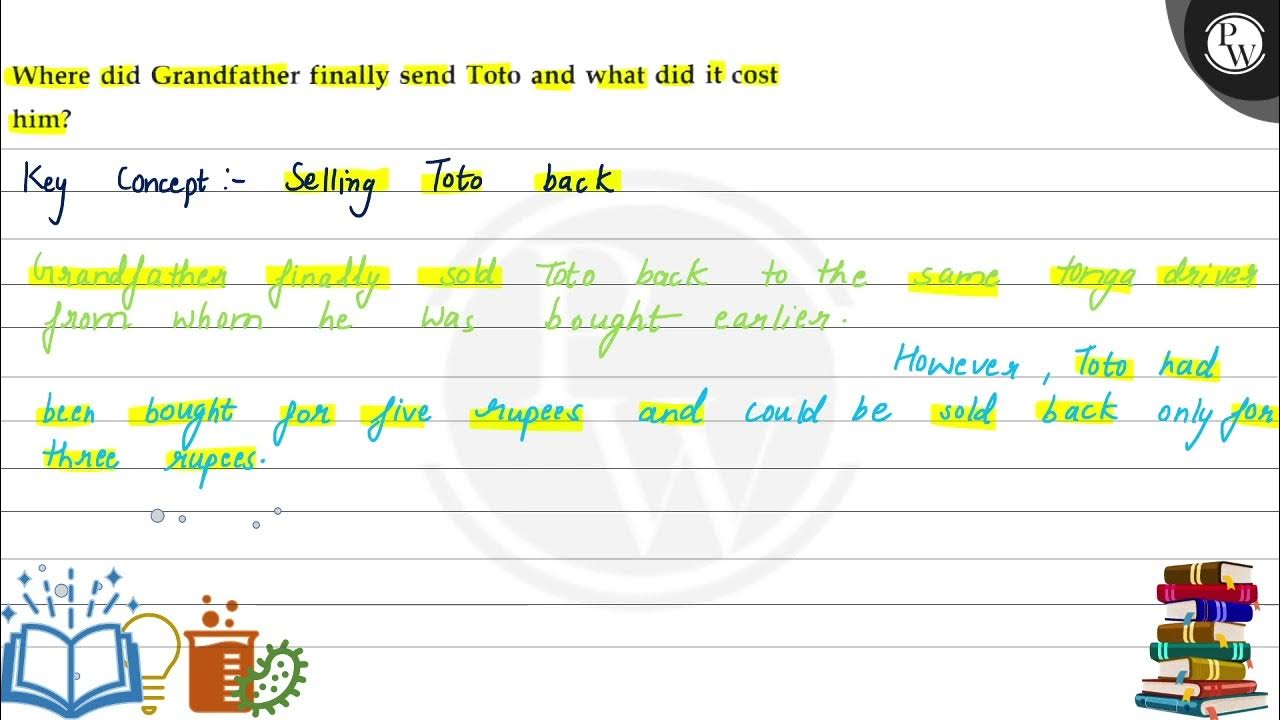 P
W
Where did Grandfather finally send Toto and what did it cost
him?
Key Concept :- Selling Toto back
Grandfather finally sold Toto back to the same tonga driver
from whom he was bought earlier.
However, Toto had
been bought for five rupees and could be sold back only for
three rupees.
P
W